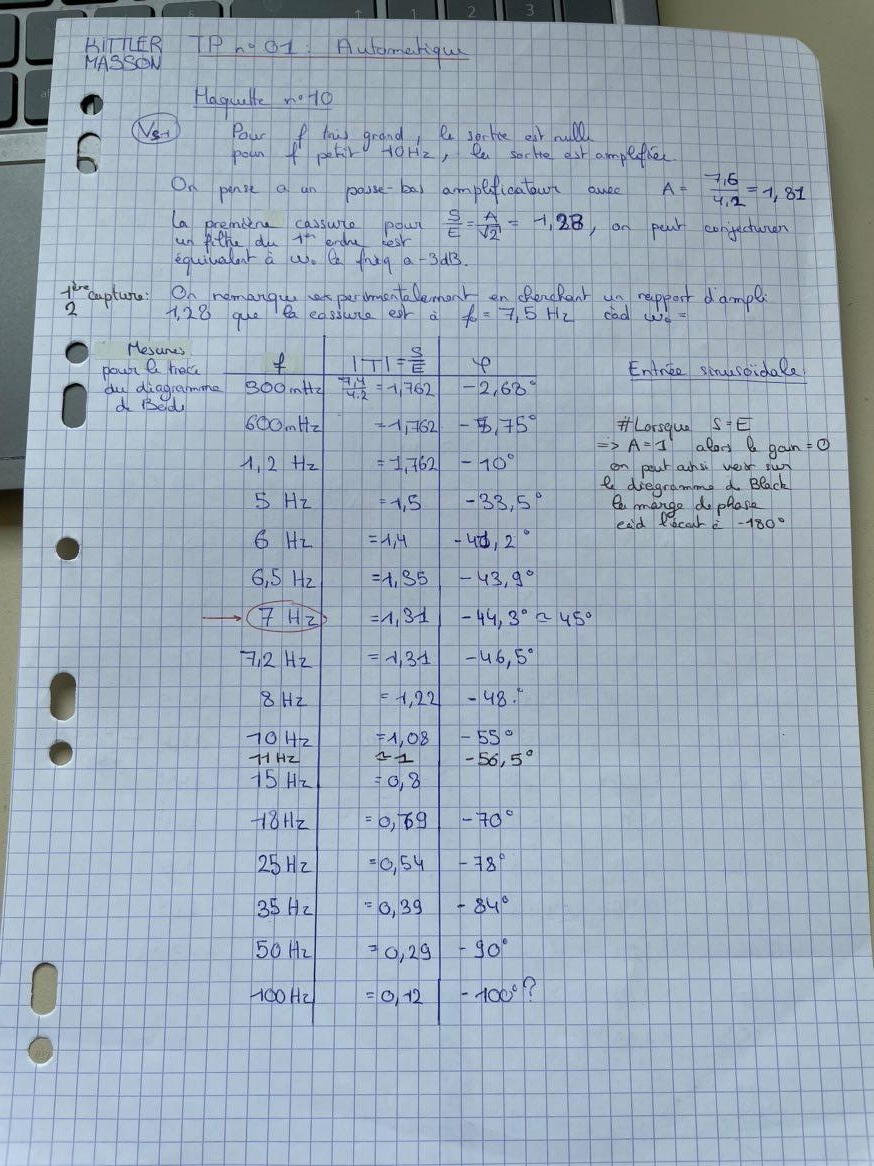 KITTLER TP n°01 : Automatique
MASSON
Maquette n°10
Vs1 Pour f très grand, la sortie est nulle
pour f petit 10Hz, la sortie est amplifiée.
On pense a un passe-bas amplificateur avec A = 7,6/4,2 = 1,81
La première cassure pour S/E = A/√2 = 1,28, on peut conjecturer
un filtre du 1er ordre est
équivalent à ω₀ la freq a -3dB.
1ère capture : On remarque experimentalement en cherchant un rapport d'ampli
2 1,28 que la cassure est à f₀ = 7,5 Hz càd ω₀ =
Mesures
pour le tracé
du diagramme
de Bode
Entrée sinusoïdale :
f |T| = S/E φ
300mHz 7,4/4,2 = 1,762 -2,68°
600mHz =1,762 -5,75°
1,2 Hz =1,762 -10°
5 Hz =1,5 -33,5°
6 Hz =1,4 -41,2°
6,5 Hz =1,35 -43,9°
→ 7 Hz =1,31 -44,3° ≃ 45°
7,2 Hz =1,31 -46,5°
8 Hz =1,22 -48°
10 Hz =1,08 -55°
11 Hz ≃1 -56,5°
15 Hz =0,8
18Hz =0,69 -70°
25 Hz =0,54 -78°
35 Hz =0,39 -84°
50 Hz =0,29 -90°
100Hz =0,12 -100°?
#Lorsque S=E
=> A=1 alors le gain = 0
on peut ainsi voir sur
le diagramme de Black
la marge de phase
càd l'écart à -180°
1
2
3